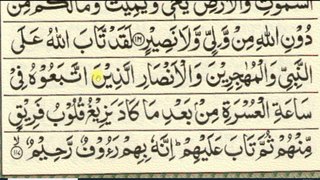 السَّمٰوٰتِ وَالْاَرْضِ يُحْيٖ وَيُمِيْتُ وَمَالَكُمْ مِّنْ
دُوْنِ اللّٰهِ مِنْ وَّلِيٍّ وَّلَا نَصِيْرٍ ﴿۱۱۶﴾ لَقَدْ تَّابَ اللّٰهُ عَلَى
النَّبِيِّ وَالْمُهٰجِرِيْنَ وَالْاَنْصَارِ الَّذِيْنَ اتَّبَعُوْهُ فِيْ
سَاعَةِ الْعُسْرَةِ مِنْۢ بَعْدِ مَا كَادَ يَزِيْغُ قُلُوْبُ فَرِيْقٍ
مِّنْهُمْ ثُمَّ تَابَ عَلَيْهِمْ ؕ اِنَّهٗ بِهِمْ رَءُوْفٌ رَّحِيْمٌ ﴿۱۱۷﴾